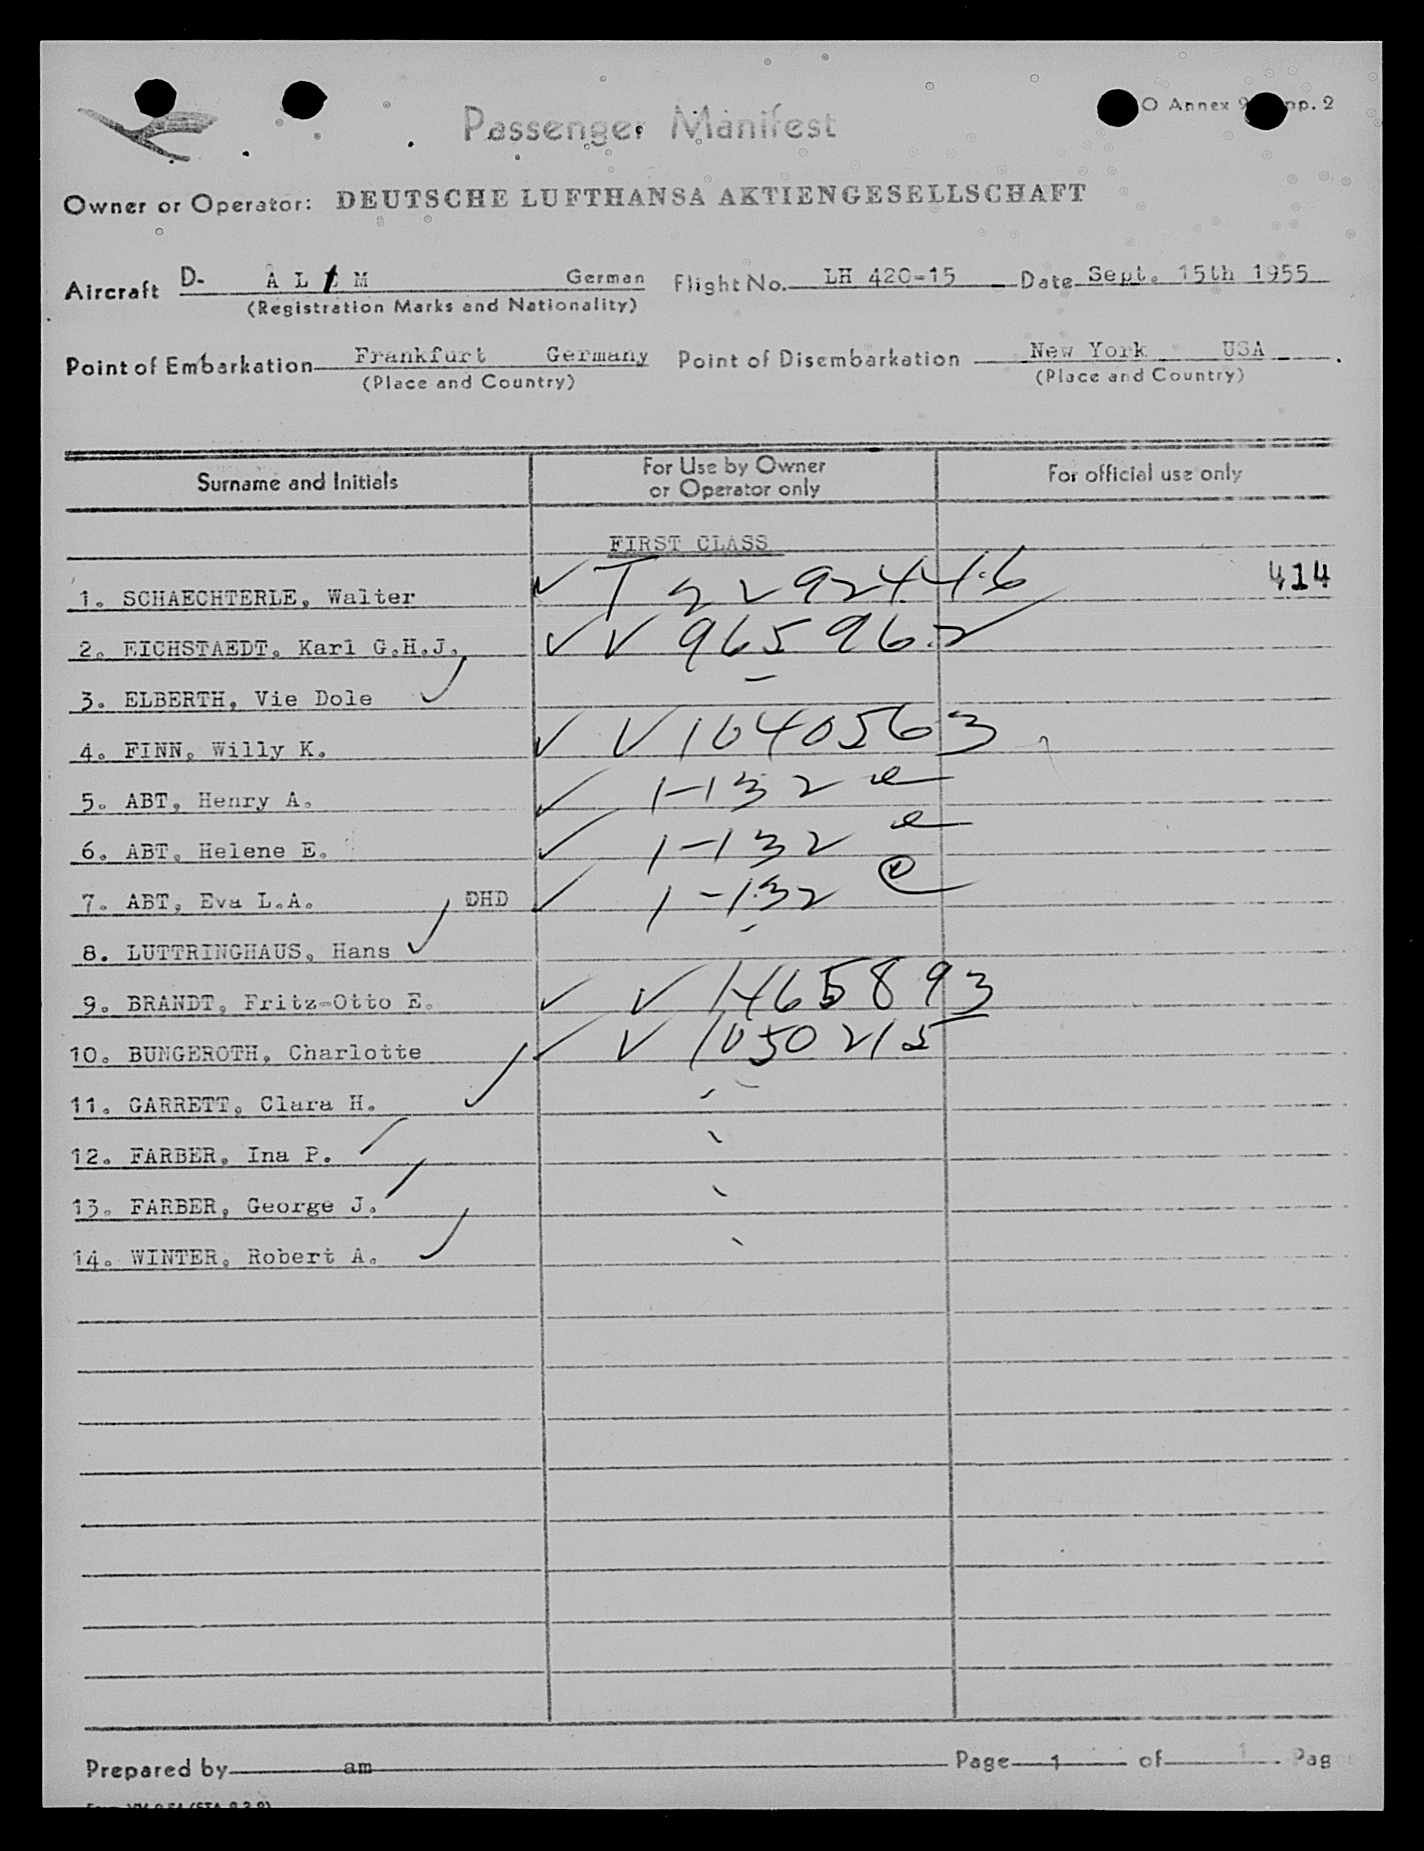 O Annex 9 pp. 2
Passenger Manifest
Owner or Operator: DEUTSCHE LUFTHANSA AKTIENGESELLSCHAFT
Aircraft D- A L M German Flight No. LH 420-15 Date Sept. 15th 1955
(Registration Marks and Nationality)
Point of Embarkation Frankfurt Germany Point of Disembarkation New York USA
(Place and Country) (Place and Country)
Surname and Initials For Use by Owner or Operator only For official use only
FIRST CLASS
1. SCHAECHTERLE, Walter ✓ T 2292446 414
2. EICHSTAEDT, Karl G.H.J. ✓ V 965962
3. ELBERTH, Vie Dole ✓ –
4. FINN, Willy K. ✓ V 1040563
5. ABT, Henry A. ✓ 1-132 e
6. ABT, Helene E. ✓ 1-132 e
7. ABT, Eva L.A. DHD ✓ 1-132 e
8. LUTTRINGHAUS, Hans ✓ –
9. BRANDT, Fritz-Otto E. ✓ V 1465893
10. BUNGEROTH, Charlotte ✓ V 1050215
11. GARRETT, Clara H. ✓
12. FARBER, Ina P.
13. FARBER, George J.
14. WINTER, Robert A. ✓
Prepared by am Page 1 of 1 Pag